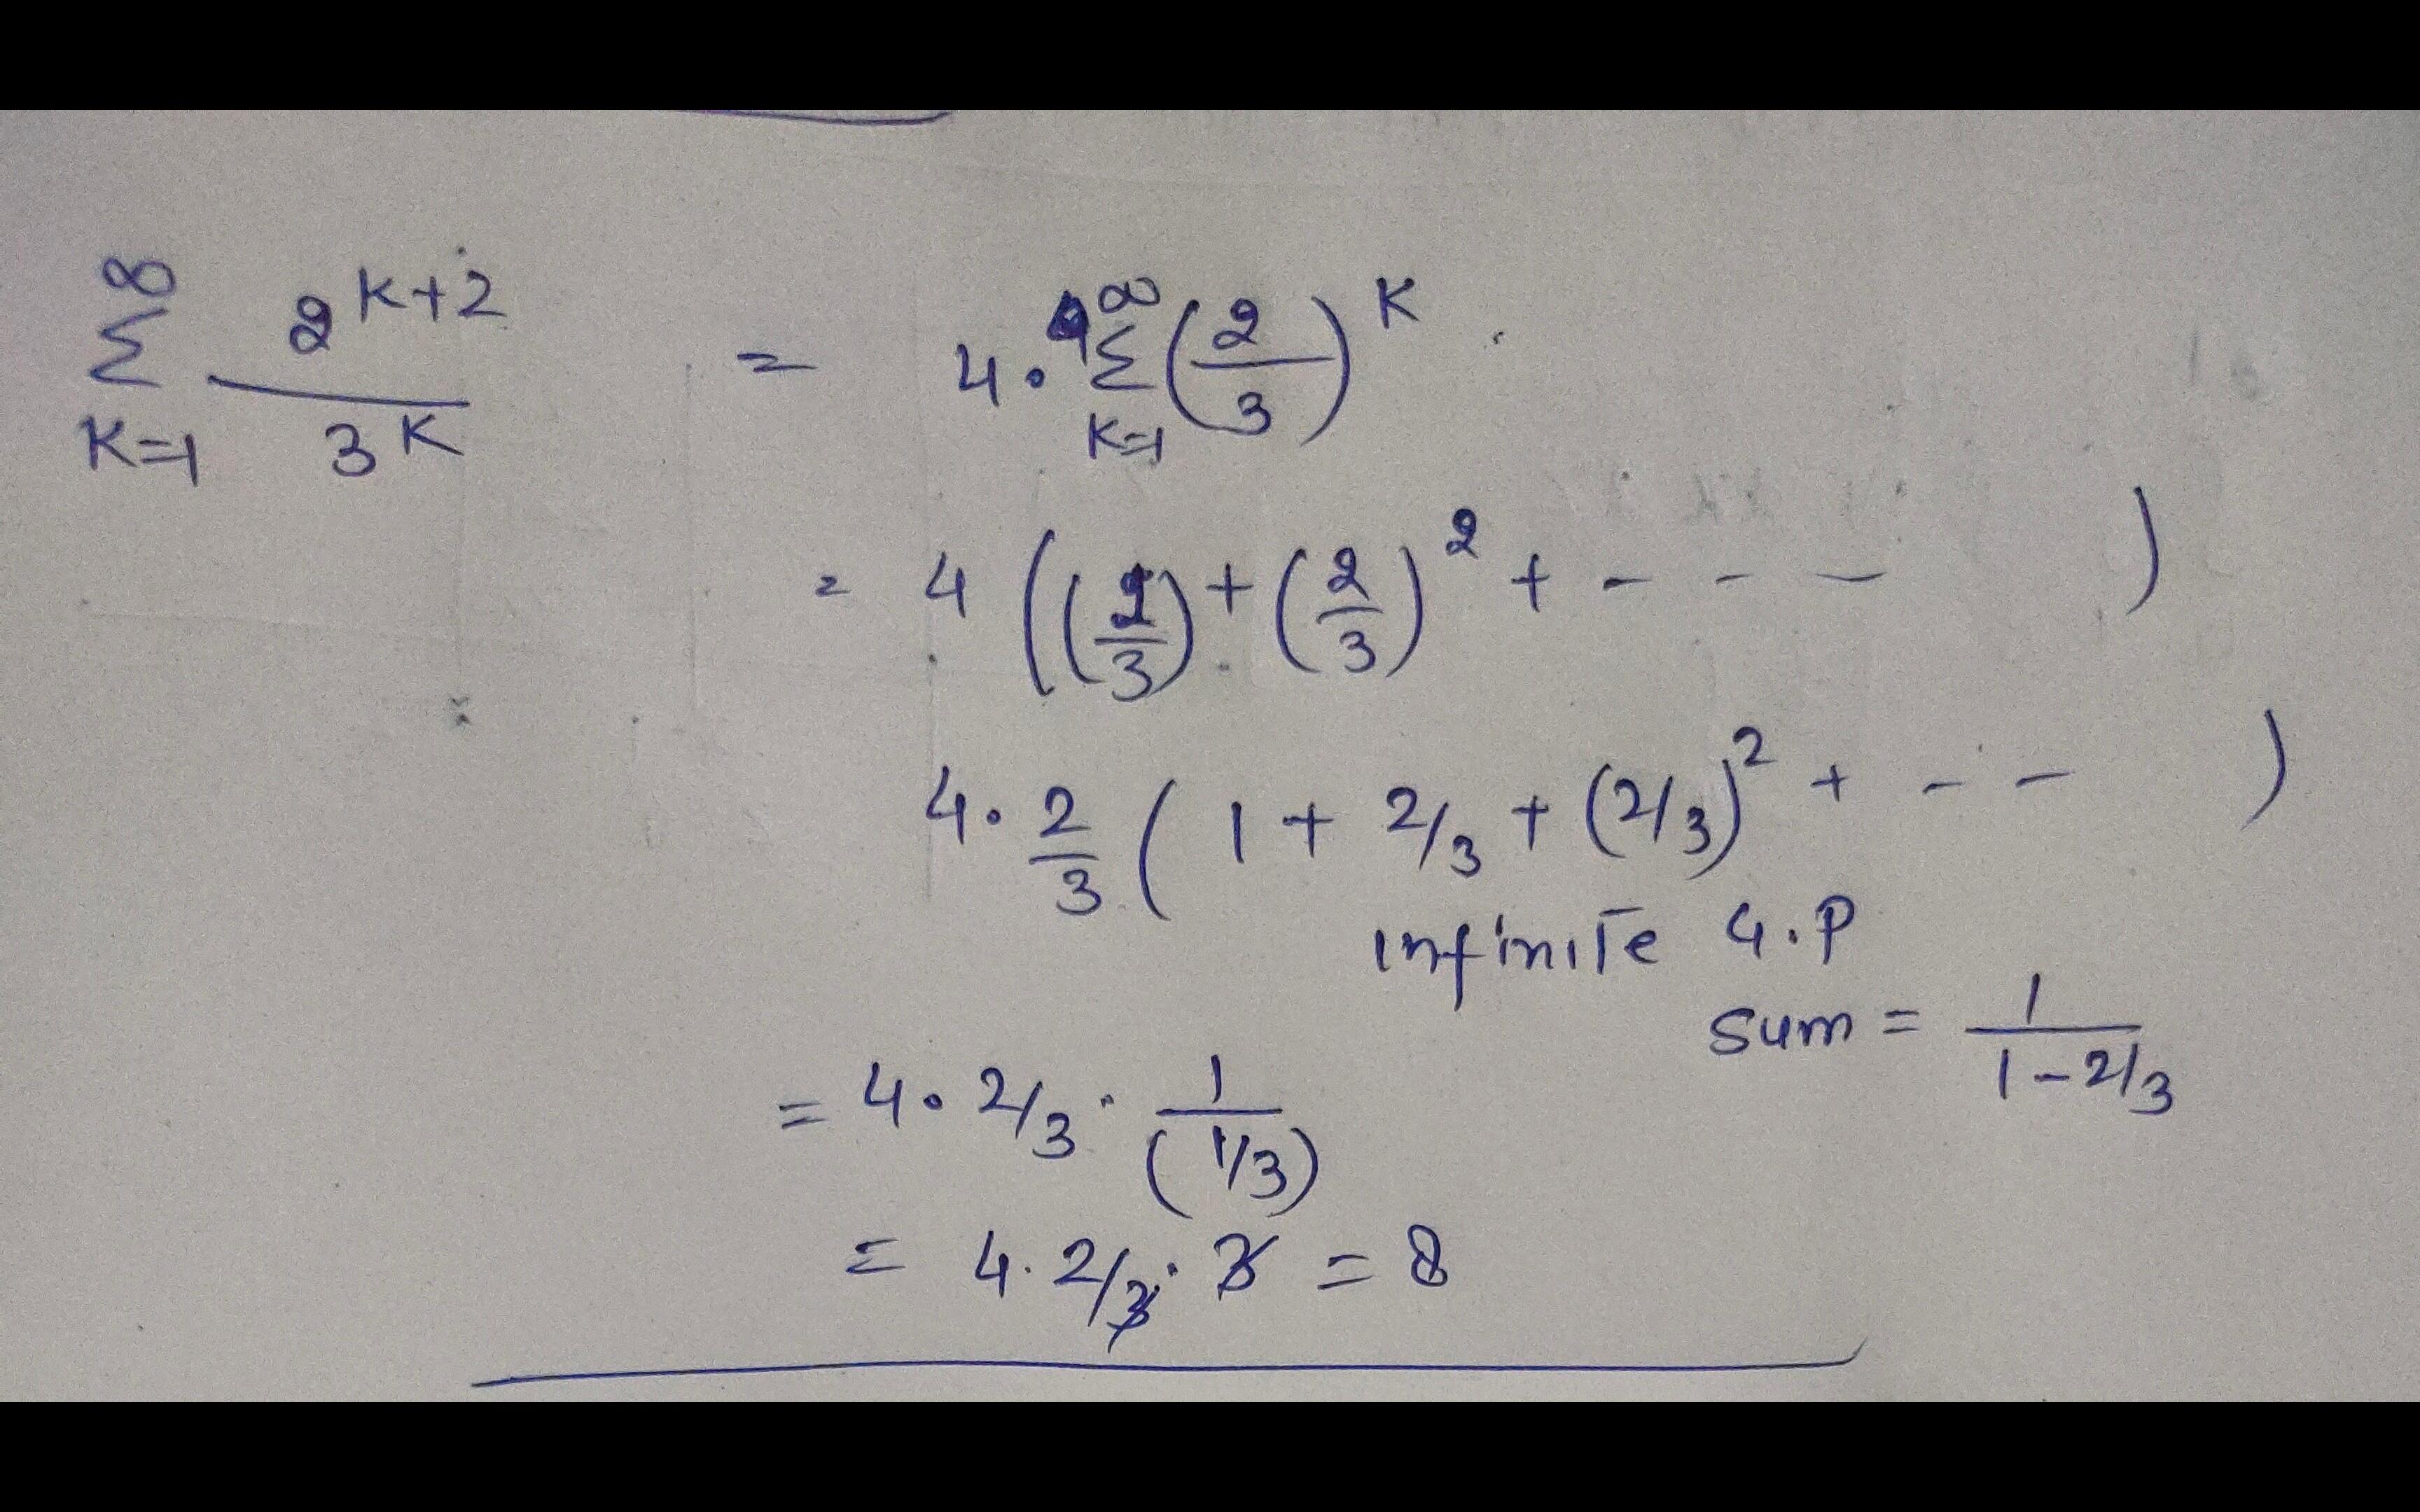 ∞
Σ 2^{K+2} / 3^K = 4 · ∞ Σ K=1 (2/3)^K
K=1
= 4 ((2/3) + (2/3)^2 + - - - )
4 · 2/3 ( 1 + 2/3 + (2/3)^2 + - - )
infinite G.P
sum = 1 / (1 - 2/3)
= 4 · 2/3 · 1 / (1/3)
= 4 · 2/3 · 3 = 8